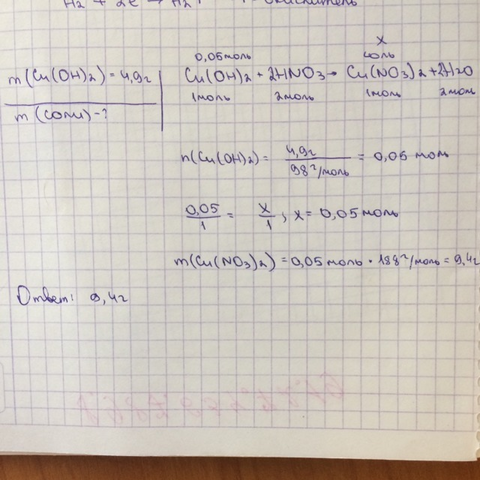 m(Cu(OH)2) = 4,9г
m(соли) - ?
0,05моль x
соль
Cu(OH)2 + 2HNO3 → Cu(NO3)2 + 2H2O
1моль 2моль 1моль 2моль
n(Cu(OH)2) = 4,9г / 98 г/моль = 0,05 моль
0,05/1 = x/1 ; x = 0,05моль
m(Cu(NO3)2) = 0,05моль · 188 г/моль = 9,4г
Ответ: 9,4г